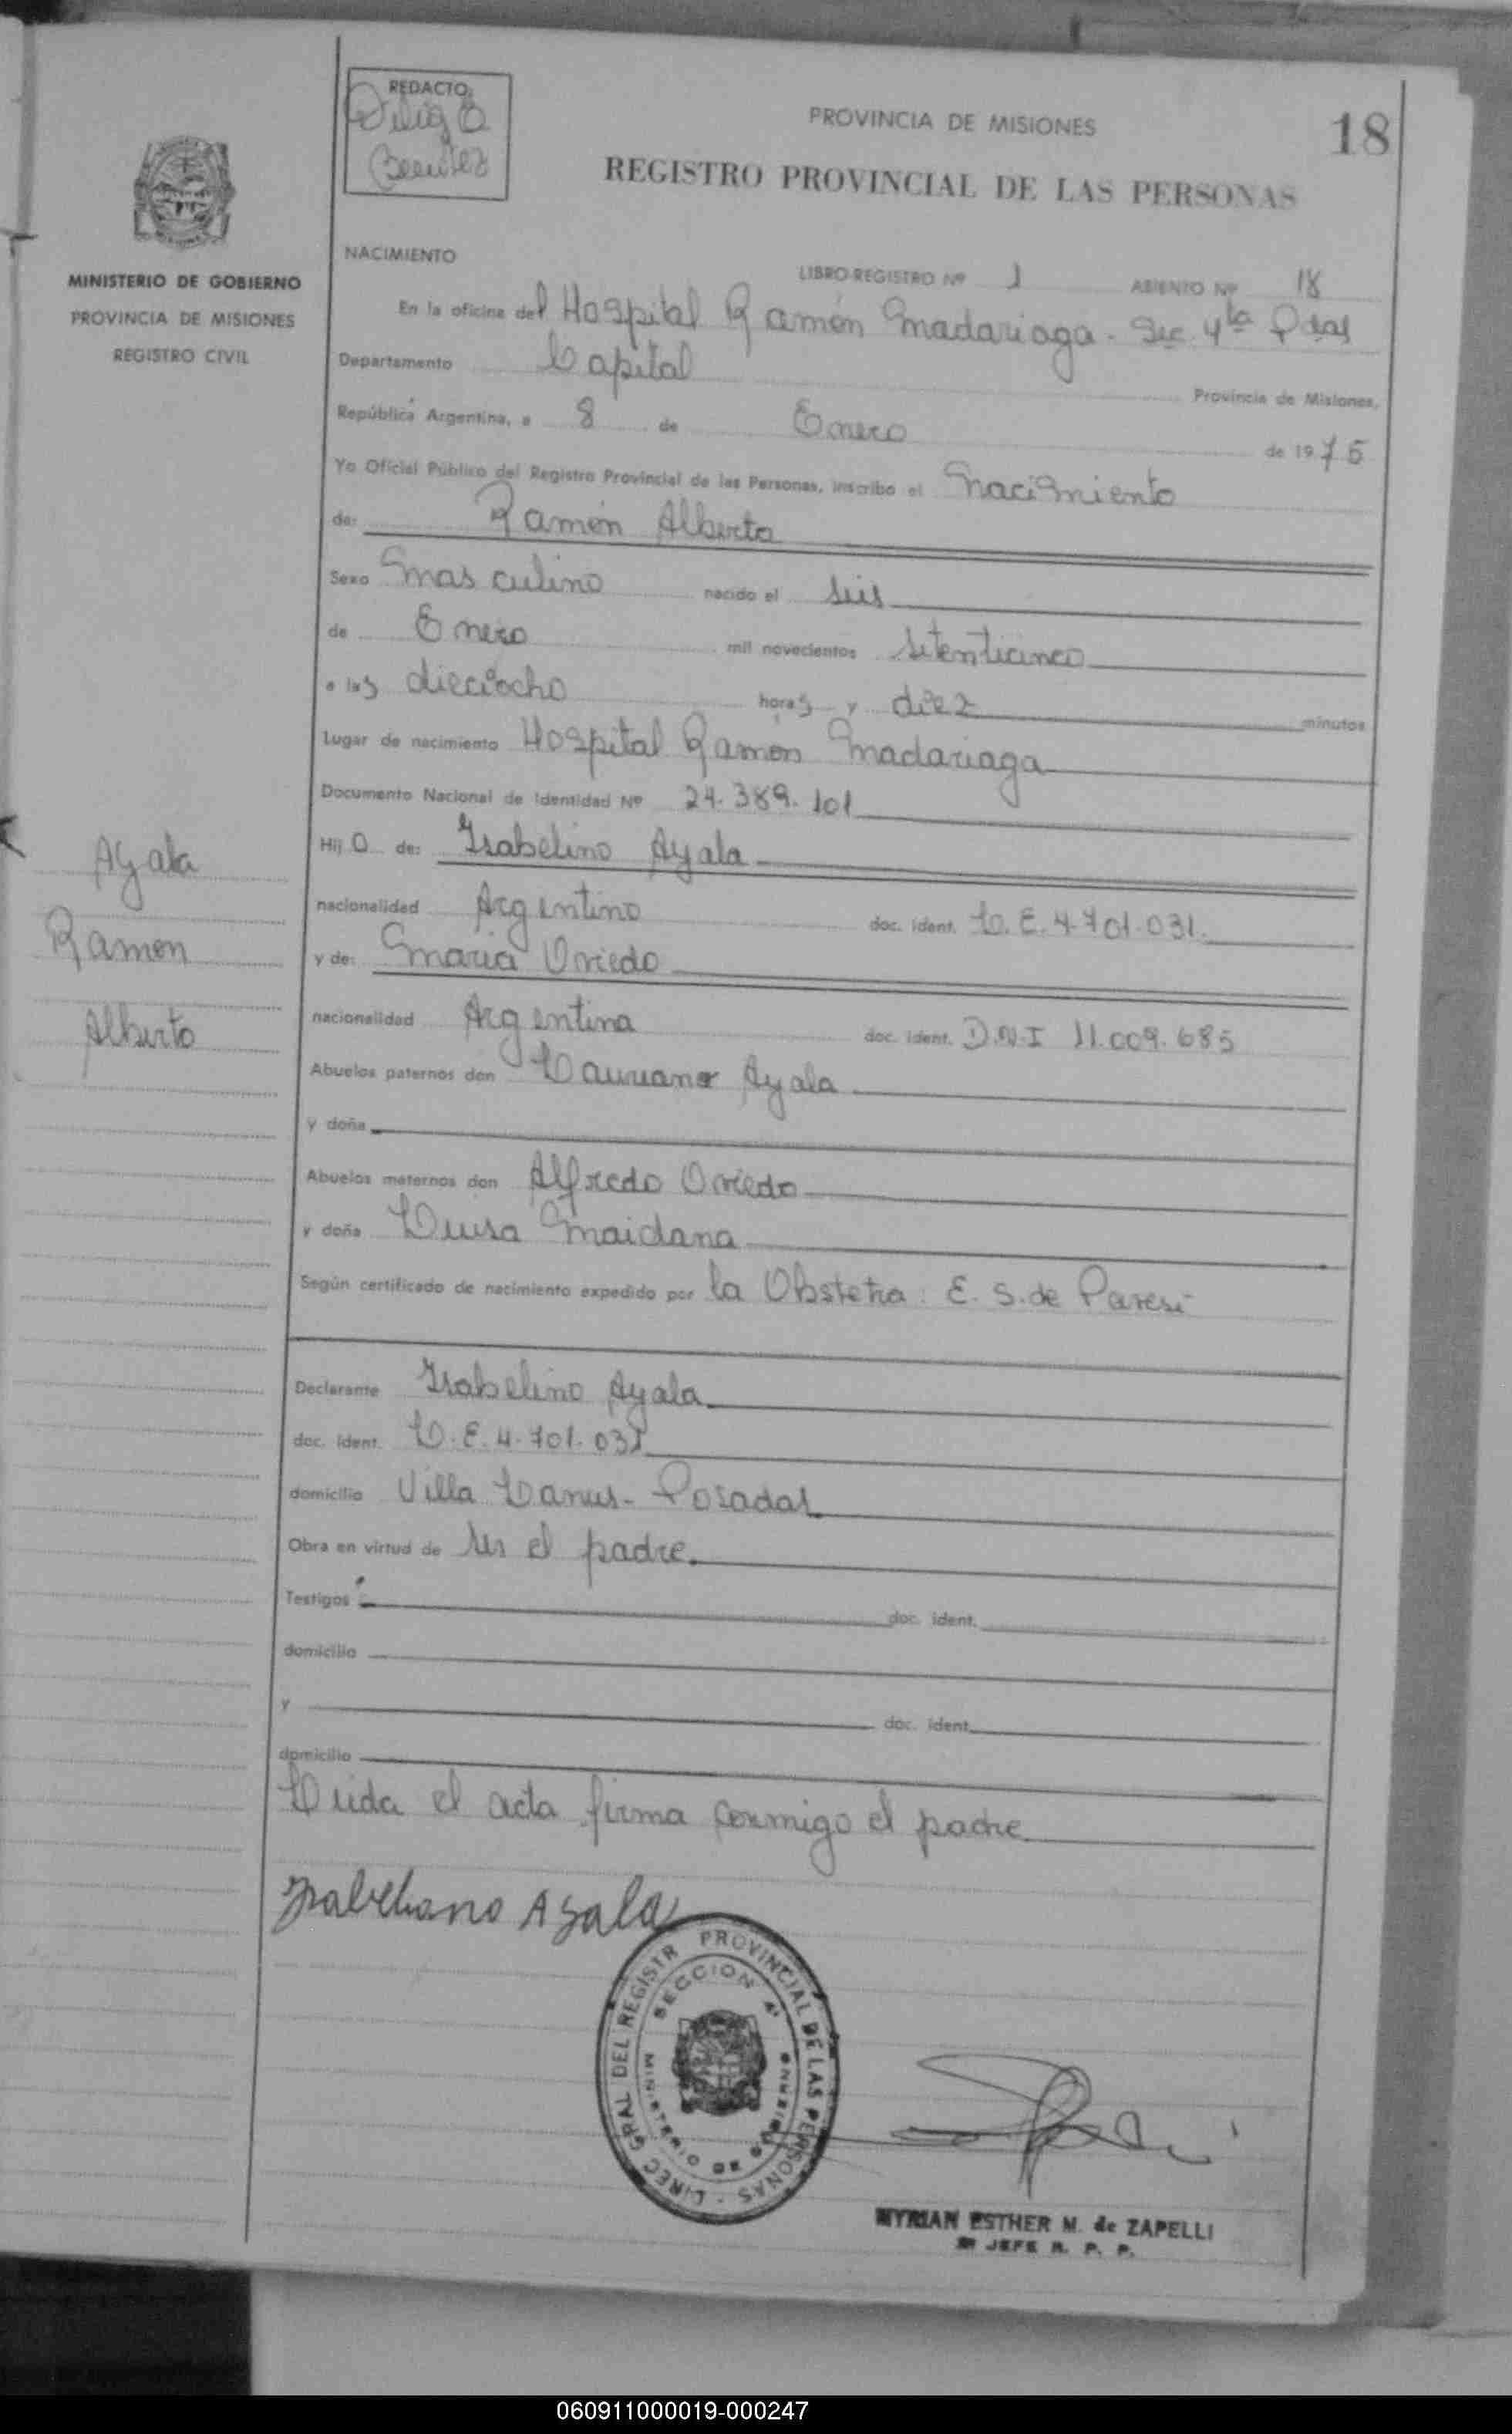 REDACTO:
Benitez
PROVINCIA DE MISIONES
18
REGISTRO PROVINCIAL DE LAS PERSONAS
MINISTERIO DE GOBIERNO
PROVINCIA DE MISIONES
REGISTRO CIVIL
NACIMIENTO
LIBRO REGISTRO Nº 1 ASIENTO Nº 18
En la oficina del Hospital Ramón Madariaga - Sec. 4ta Pdas
Departamento Capital Provincia de Misiones,
República Argentina, a 8 de Enero de 1975
Yo Oficial Público del Registro Provincial de las Personas, inscribo el Nacimiento
de: Ramón Alberto
Sexo Masculino nacido el seis
de Enero mil novecientos setenticinco
a las dieciocho horas y diez minutos
Lugar de nacimiento Hospital Ramón Madariaga
Documento Nacional de Identidad Nº 24.389.101
Hijo de: Isabelino Ayala
nacionalidad Argentino doc. ident. L.E. 4.701.031.
y de: Maria Oviedo
nacionalidad Argentina doc. ident. D.N.I 11.009.685
Abuelos paternos don Laureano Ayala
y doña
Abuelos maternos don Alfredo Oviedo
y doña Luisa Maidana
Según certificado de nacimiento expedido por la Obstetra: E. S. de Paresi
Declarante Isabelino Ayala
doc. ident. L.E. 4.701.031
domicilio Villa Lanus - Posadas
Obra en virtud de ser el padre.
Testigos doc. ident.
domicilio
y doc. ident.
domicilio
Leida el acta firma conmigo el padre
Ayala
Ramon
Alberto
Isabeliano Ayala
DIREC GRAL DEL REGISTR PROVINCIAL DE LAS PERSONAS
SECCION 4ª
MINISTERIO DE GOBIERNO
MYRIAN ESTHER M. de ZAPELLI
JEFE R. P. P.
060911000019-000247